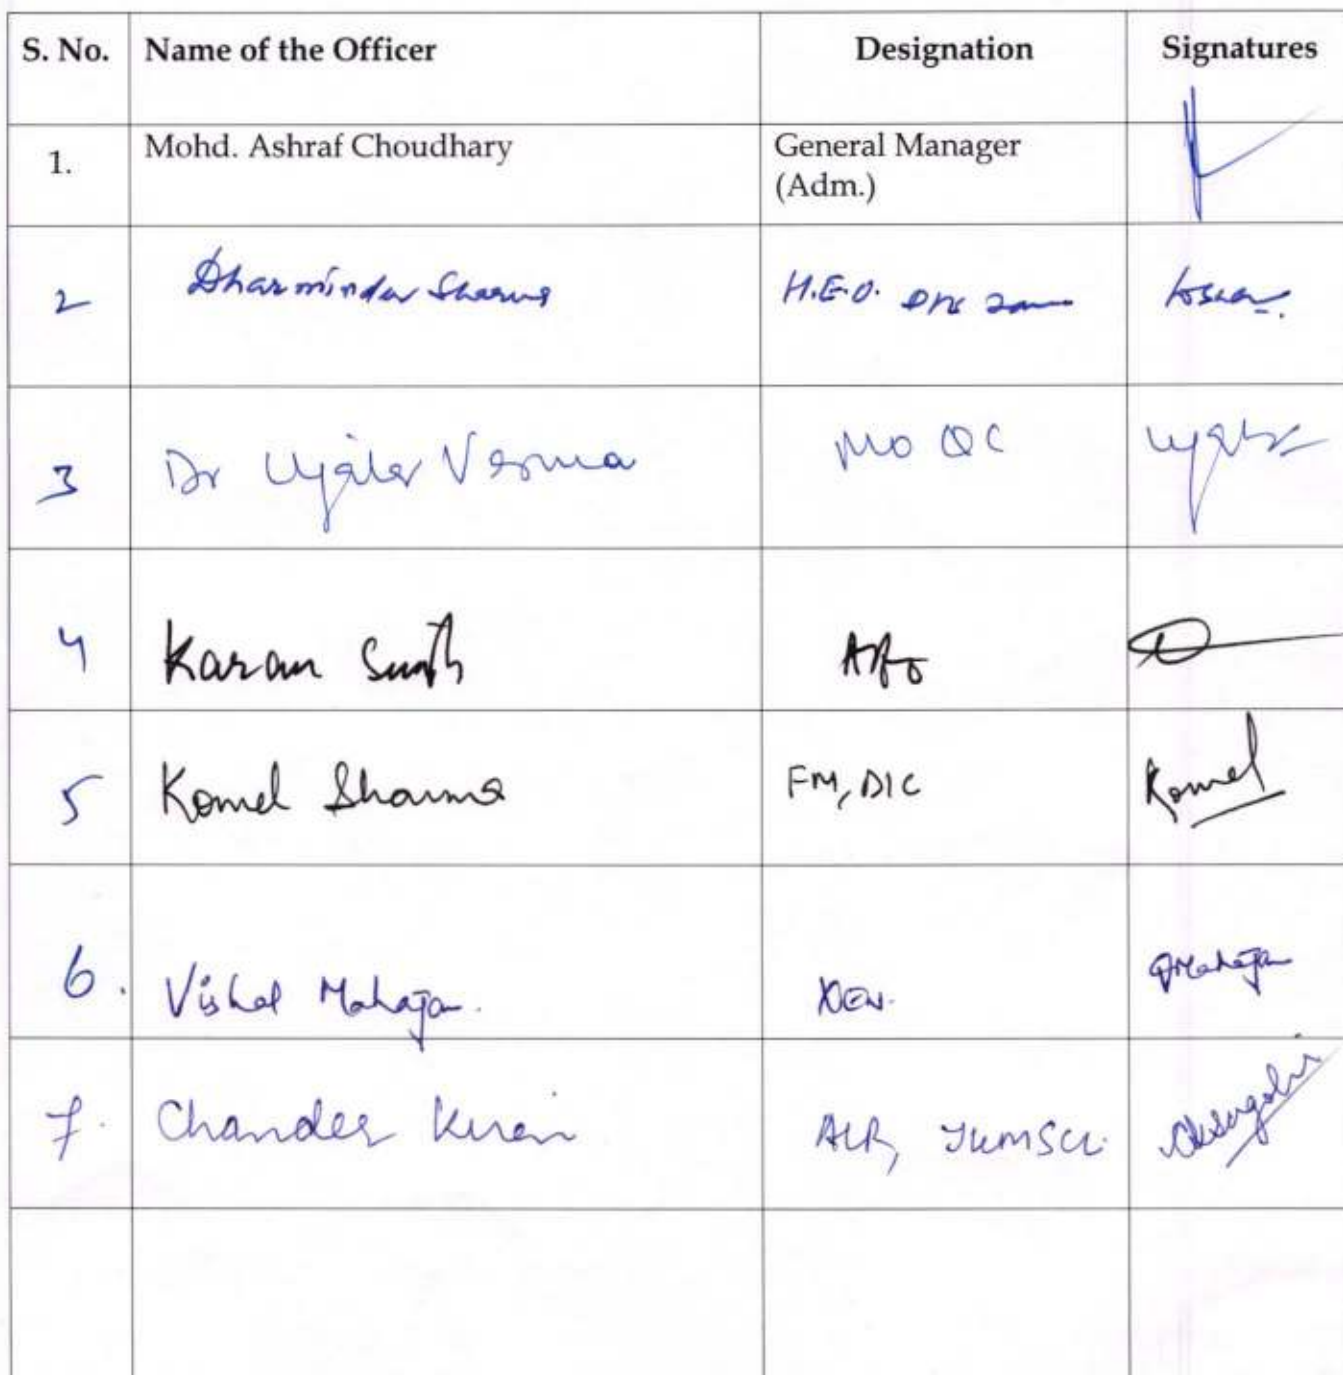 S. No. Name of the Officer Designation Signatures
1. Mohd. Ashraf Choudhary General Manager
(Adm.)
2 Dharminder Sharma H.E.O.
3 Dr Ujala Verma MO QC
4 Karan Singh
5 Komel Sharma FM, DIC Komel
6. Vishal Mahajan. XEN. Mahajan
7. Chander Kiran JKMSCL.